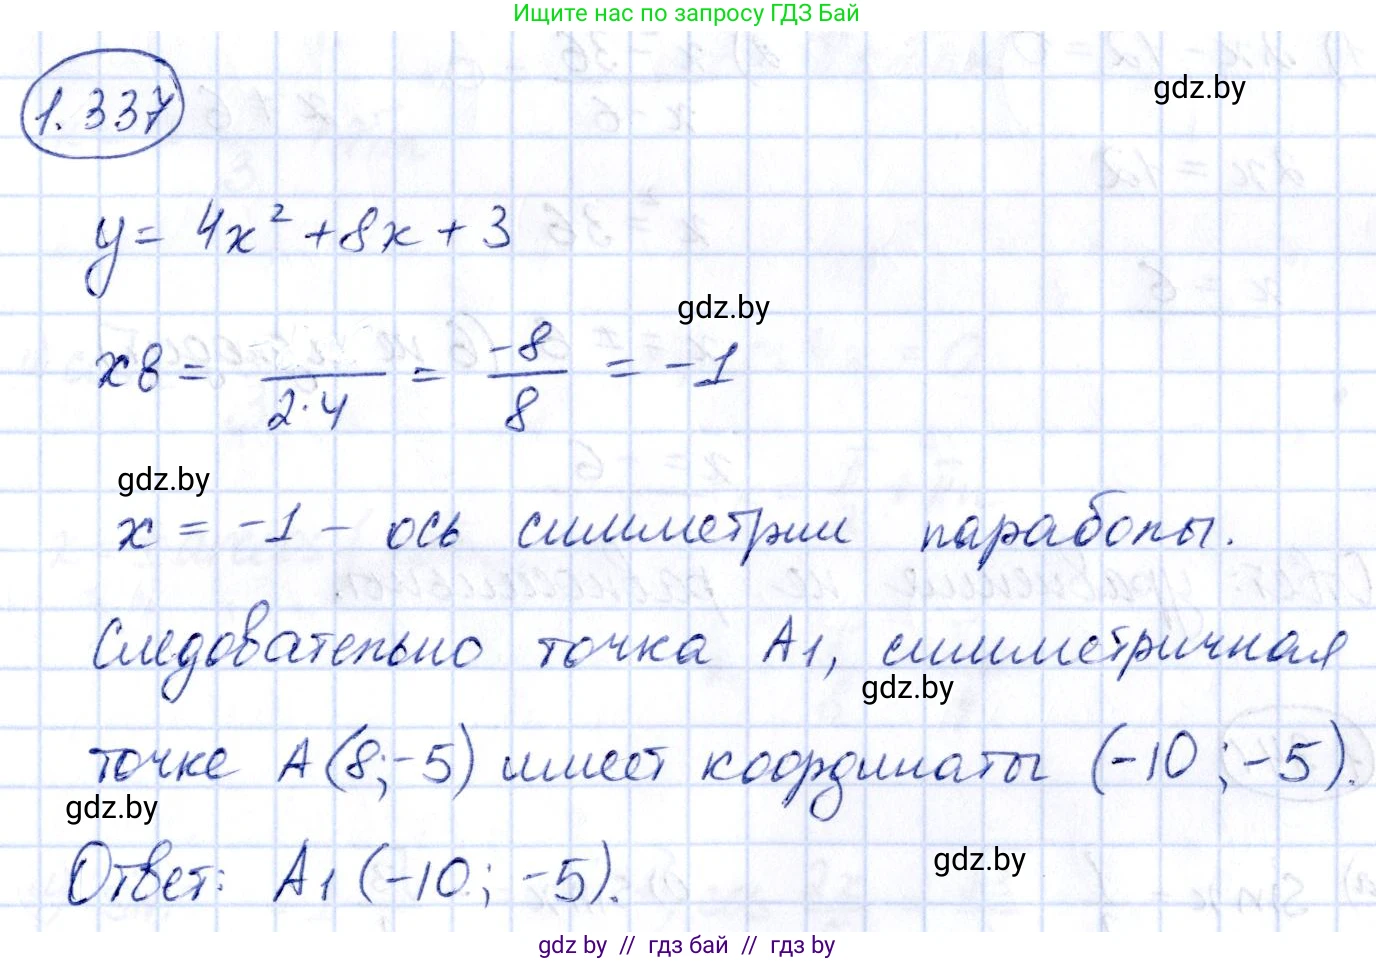 Ищите нас по запросу ГДЗ Бай
1.337
gdz.by
y = 4x² + 8x + 3
gdz.by
xв = ――/2·4 = -8/8 = -1
gdz.by
x = -1 - ось симметрии параболы.
Следовательно точка A1, симметричная
gdz.by
точке A(8;-5) имеет координаты (-10; -5).
gdz.by
Ответ: A1 (-10; -5).
gdz.by
gdz by // гдз бай // гдз by